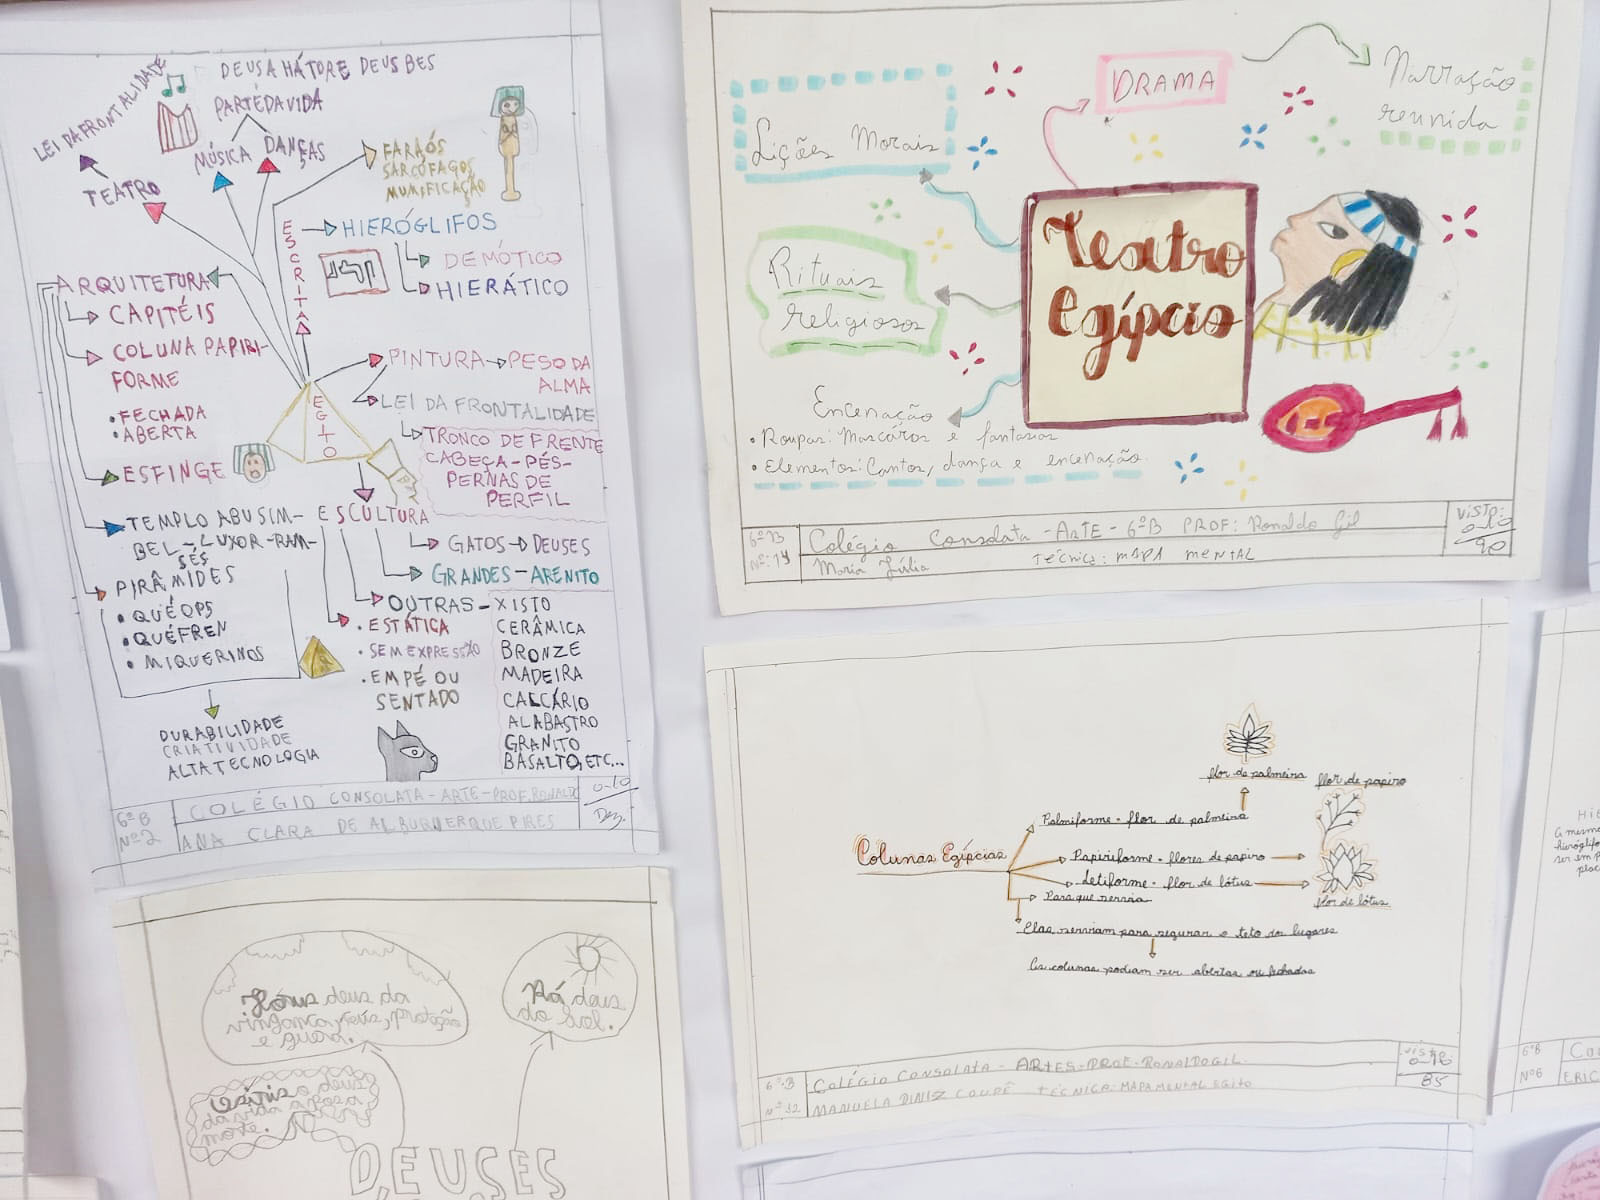 LEI DA FRONTALIDADE
DEUSA HÁTOR E DEUS BES
PARTE DA VIDA
MÚSICA DANÇAS
TEATRO
FARAÓS
SARCÓFAGOS
MUMIFICAÇÃO
ESCRITA
HIERÓGLIFOS
DEMÓTICO
HIERÁTICO
ARQUITETURA
CAPITÉIS
COLUNA PAPIRI-
FORME
• FECHADA
• ABERTA
ESFINGE
TEMPLO ABUSIM-
BEL-LUXOR-RAM-
SÉS
PIRÂMIDES
• QUÉOPS
• QUÉFREN
• MIQUERINOS
DURABILIDADE
CRIATIVIDADE
ALTA TECNOLOGIA
EGITO
PINTURA → PESO DA
ALMA
LEI DA FRONTALIDADE
TRONCO DE FRENTE
CABEÇA-PÉS-
PERNAS DE
PERFIL
ESCULTURA
GATOS → DEUSES
GRANDES-ARENITO
OUTRAS-XISTO
CERÂMICA
BRONZE
MADEIRA
CALCÁRIO
ALABASTRO
GRANITO
BASALTO, ETC...
• ESTÁTICA
• SEM EXPRESSÃO
• EMPÉ OU
SENTADO
6º B
Nº 2
COLÉGIO CONSOLATA-ARTE-PROF. RONALDO
ANA CLARA DE ALBUQUERQUE PIRES
0-10
Dez.
DRAMA
Narração
reunida
Lições Morais
Teatro
Egípcio
Rituais
religiosos
Encenação
• Roupas: Mascáras e fantasias
• Elementos: Cantos, dança e encenação.
6º B
Nº: 14
Colégio Consolata - ARTE - 6º B PROF: Ronaldo Gil
Maria Júlia
TÉCNICA: MAPA MENTAL
VISTO:
0-10
90
flor de palmeira
flor de papiro
Colunas Egípcias
Palmiforme - flor de palmeira
Papiriforme - flores de papiro
Lotiforme - flor de lótus
Para que serviam
flor de lótus
Elas serviam para segurar o teto dos lugares
As colunas podiam ser abertas ou fechadas
6º B
Nº 32
COLÉGIO CONSOLATA - ARTES-PROF-RONALDO GIL
MANUELA DINIZ COUPÊ TÉCNICA: MAPA MENTAL EGITO
VISTO:
0-10
85
Hórus deus da
vingança, céus, proteção
e guerra.
Rá deus
do Sol.
DEUSES
6º B
Nº 6
ERIC